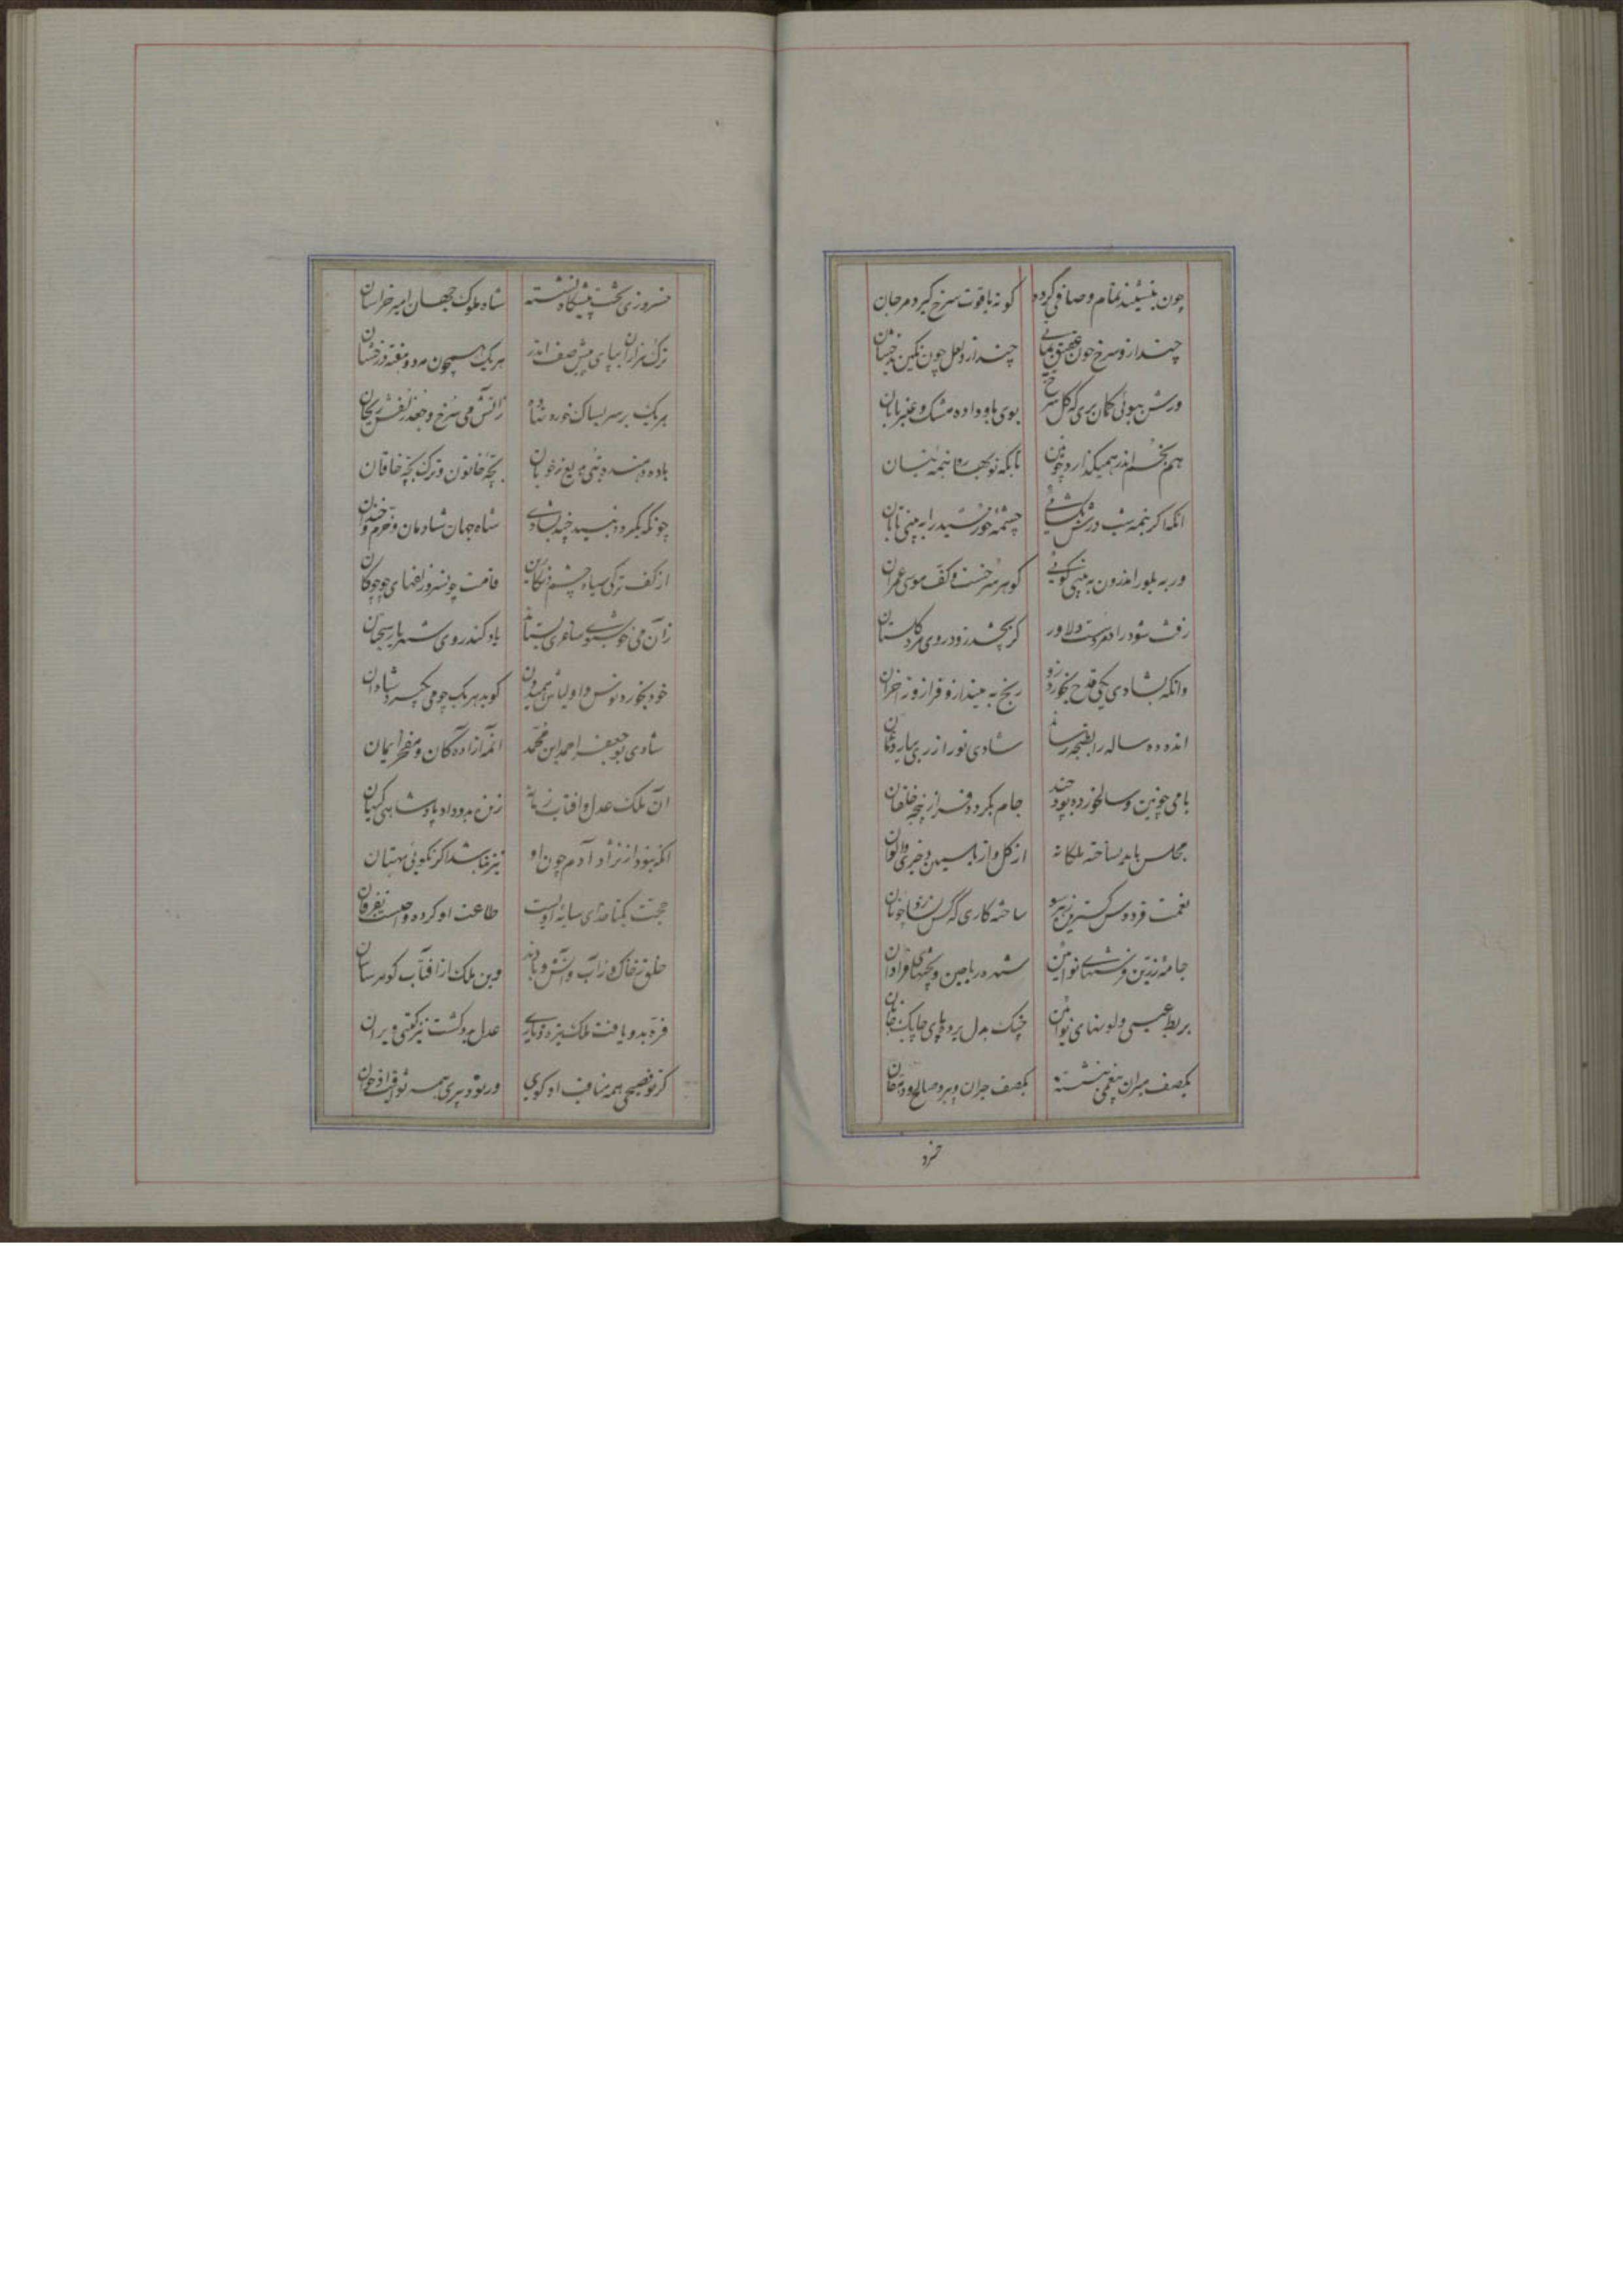 چون بنشیند تمام و صافی گردد گونه یاقوت سرخ گیرد مرجان
چند ازو سرخ چون عقیق یمانی چند ازو لعل چون نگین بدخشان
ورش ببوئی گمان بری که گل سرخ بوی باو داده مشک و عنبر بابان
هم بخم اندر همیگدازد چونین تا بگه نوبهار و نیمه نیسان
آنگه اگر نیمه شب درش بگشایی چشمه خورشید را به بینی تابان
ور به بلور اندرون به بینی گویی گوهر سرخست و کف موسی عمران
زفت شود راد مرد سست دلاور گر بچشد زو و روی زرد گلستان
وانکه بشادی یکی قدح بخورد زو رنج نه بیند ازو فراز و نه احزان
انده ده ساله را بطنجه رساند شادی نو را ز ری بیارد و عمان
با می چونین و سالخورده بود چند جامه بکرده فراز پنجه خلقان
مجلس باید بساخته ملکانه از گل و از یاسمین و خیری والوان
نعمت فردوس گسترده ز هر سو ساخته کاری که کس نسازد چونان
جامه زرین و فرشهای نوآئین شهره ریاحین و تختهای فراوان
بربط عیسی و لونهای نوآئین چنگ مدل برده پای چابک جانان
یکصف میران بلعمی بنشسته یکصف حران و پیر و صالح دهقان
خسرو
خسرو بر تخت پیشگاه نشسته شاه ملوک جهان امیر خراسان
ترک هزاران بپای پیش صف اندر هر یک همچون مه دو هفته درخشان
هر یک بر سر بساک خورد نهاده ز آتش می سرخ و جعد زلفش ریحان
باده دهنده بتی بدیع ز خوبان بچه خاتون و ترک بچه خاقان
چونکه بگردد نبید چند بشادی شاه جهان شادمان و خرم و خندان
از کف ترکی سیاه چشم نگارین قامت چو سرو و زلفهای چو چوگان
زآن می خوشبوی ساغری بستاند یاد کند روی شهریار سجستان
خود بخورد نوش و اولیاش همیدون گوید هر یک چو می بگیرد شادان
شادی بوجعفر احمد ابن محمد آنمه آزادگان و مفخر ایمان
آن ملک عدل و آفتاب زمانه زنده بدو داد پادشاهی گیهان
آنکه نبود از نژاد آدم چون او نیز نباشد اگر نگوئی بهتان
حجت یکتا خدای سایه اویست طاعت او کرده واجبست بفرقان
خلق ز خاک و ز آب و آتش و بادند وین ملک از آفتاب گوهر ساسان
فره بدو یافت ملک تیره و تاری عدل بدو گشت نیز گیتی ویران
گر تو فصیحی همه مناقب او گوی ور تو دبیری همه مدایح او خوان